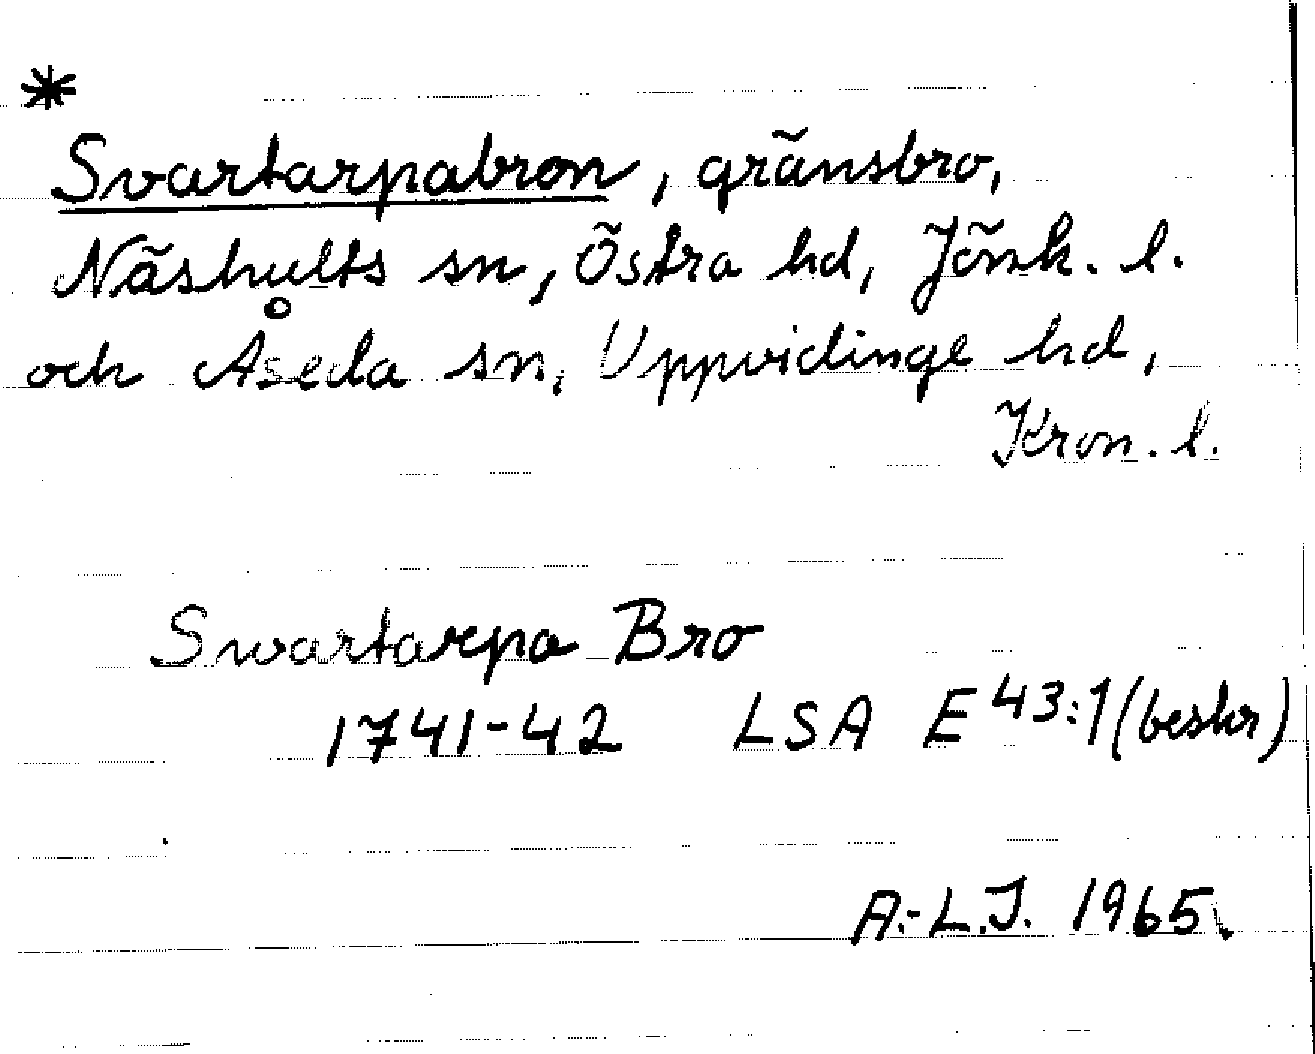 *
Svartarpabron, gränsbro,
Näshults sn, Östra hd, Jönk. l.
och Åseda sn, Uppvidinge hd,
Kron. l.
Swartarpa Bro
1741-42 LSA E 43:1 (beskr)
A.-L.J. 1965.